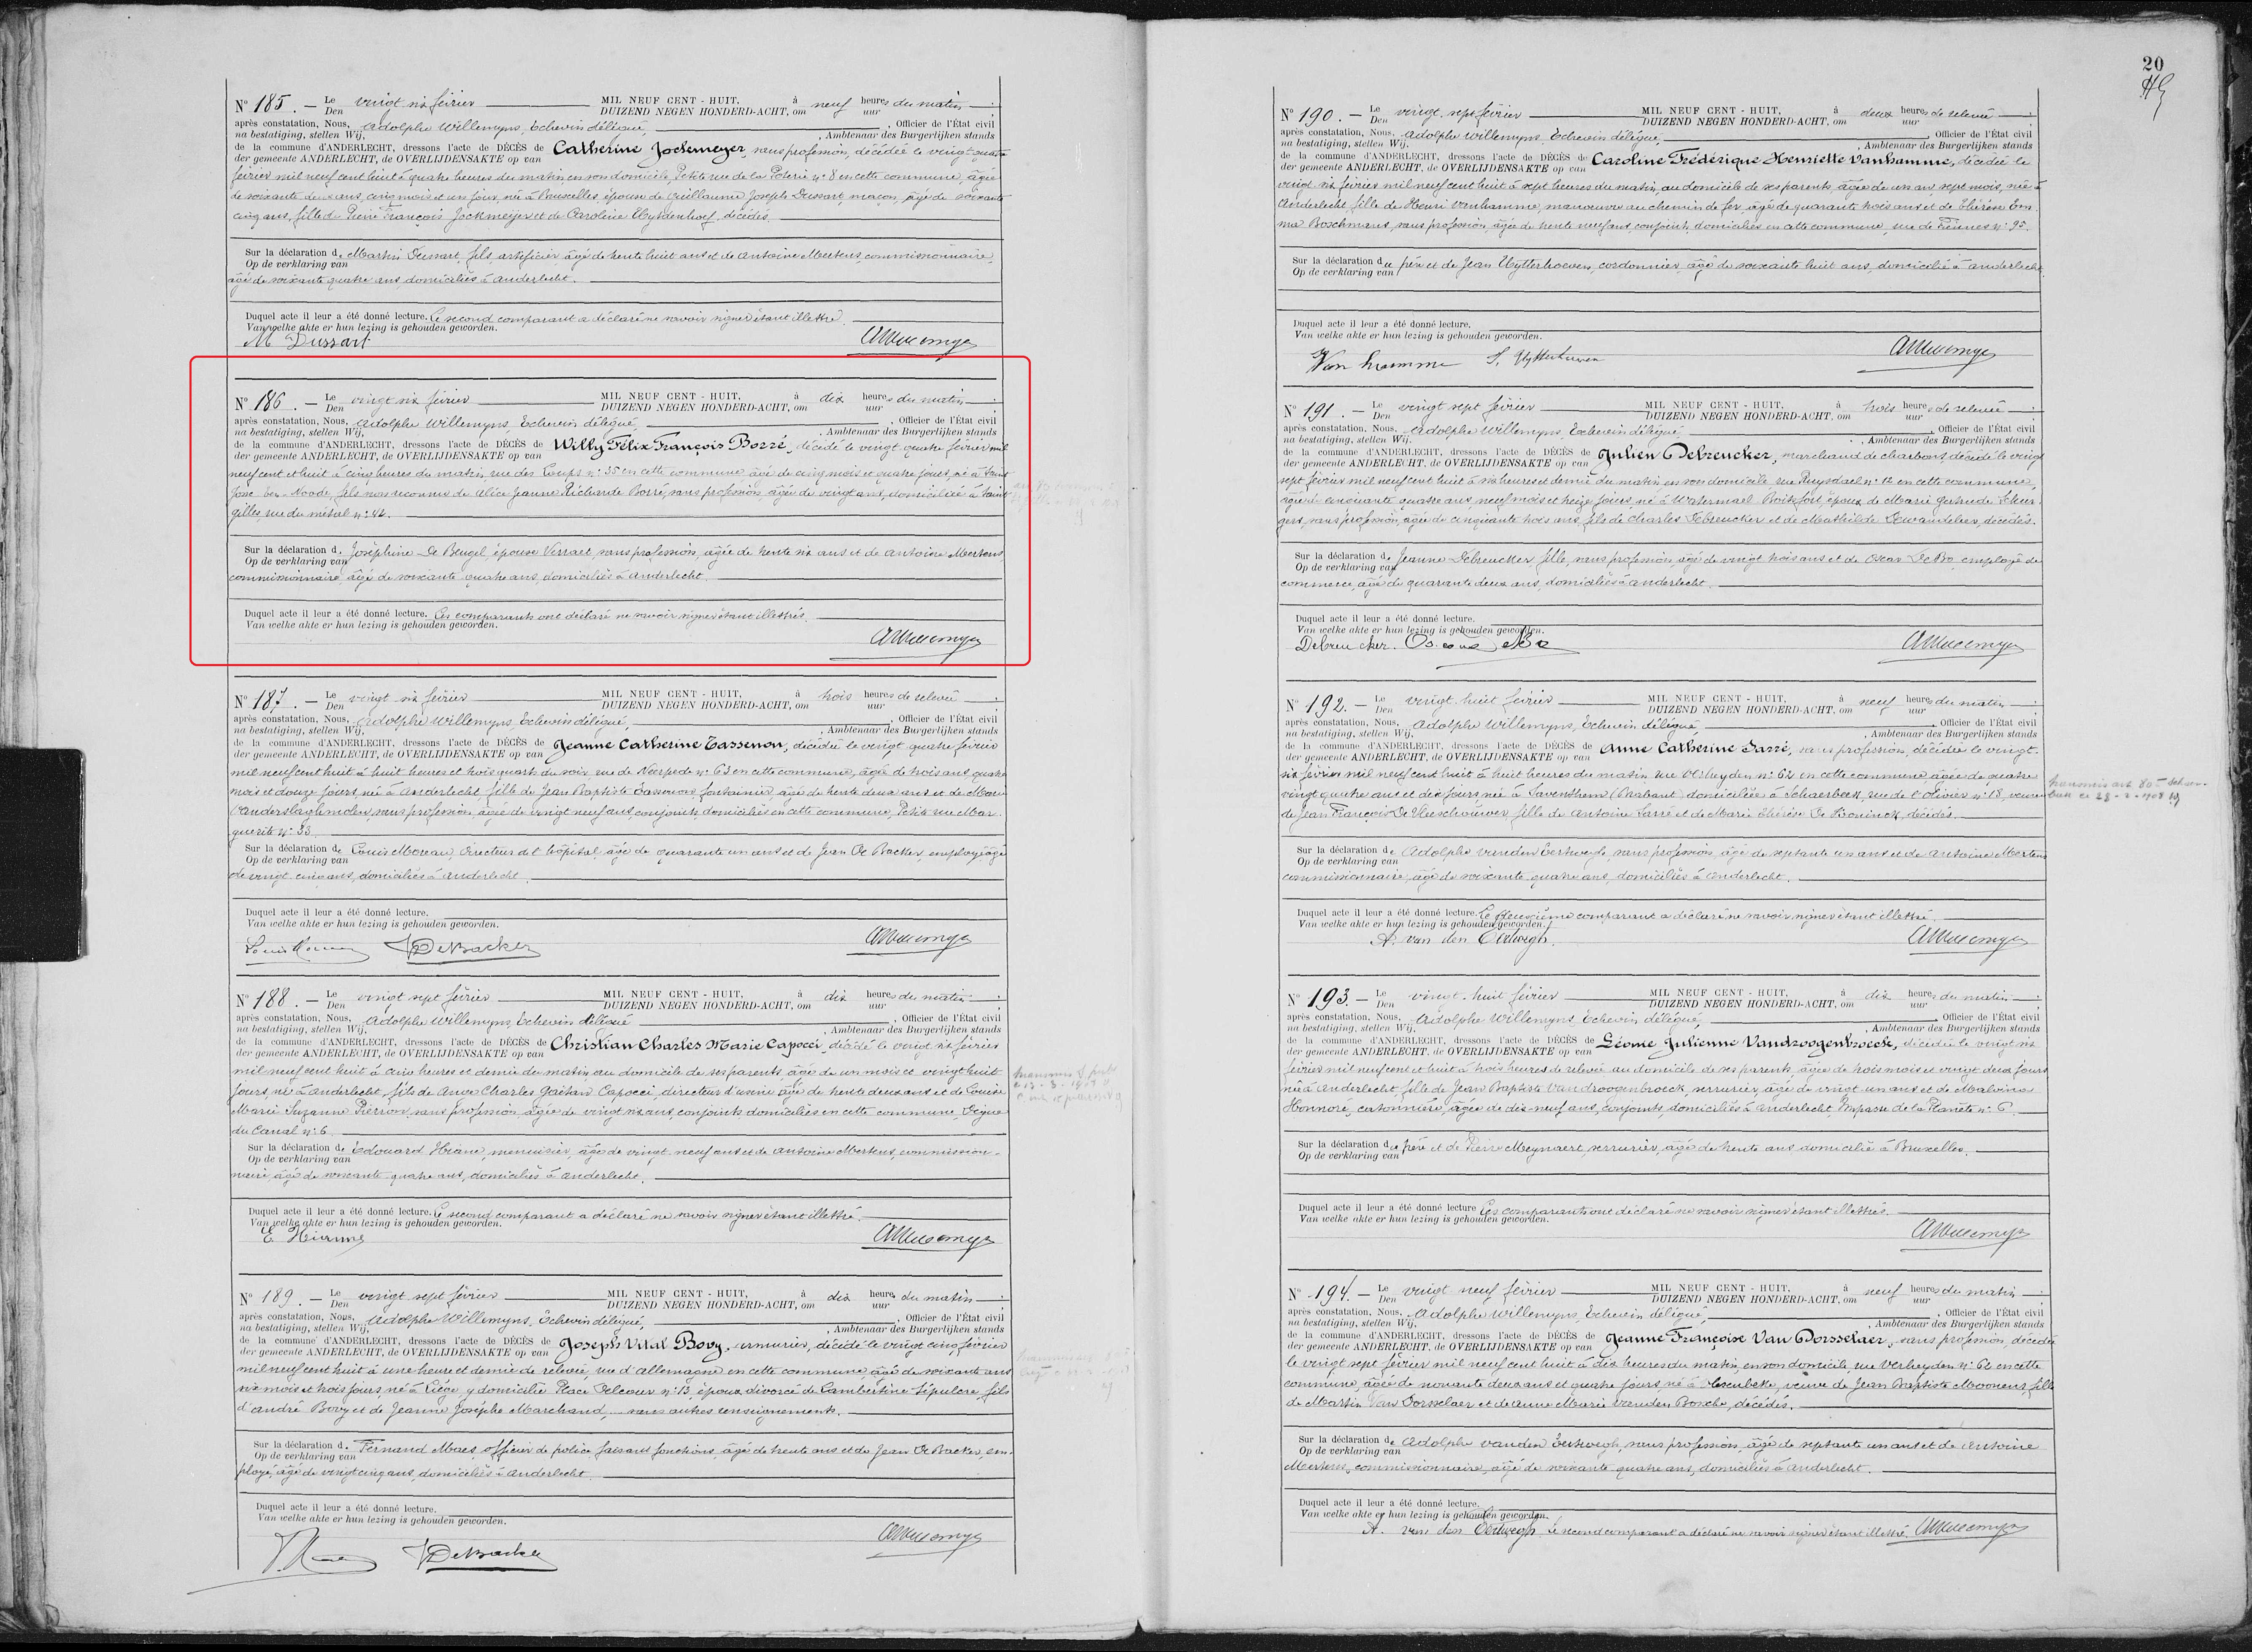 20
N° 185. — Le vingt six février MIL NEUF CENT - HUIT, à neuf heures du matin :
Den DUIZEND NEGEN HONDERD-ACHT, om uur
après constatation, Nous, Adolphe Willemyns, Echevin délégué, , Officier de l'État civil
na bestatiging, stellen Wij, , Ambtenaar des Burgerlijken stands
de la commune d'ANDERLECHT, dressons l'acte de DÉCÈS de Catherine Jockemeyer, sans profession, décédée le vingt-quatre
der gemeente ANDERLECHT, de OVERLIJDENSAKTE op van
février mil neuf cent huit à quatre heures du matin, en son domicile, Petite rue de la Poterie n° 8 en cette commune, âgée
de soixante deux ans, cinq mois et un jour, née à Bruxelles, épouse de Guillaume Joseph Dussart, maçon, âgé de soixante
cinq ans, fille de Pierre François Jockmeyer et de Caroline décédés.
Sur la déclaration de Martin Dussart, fils, artificier, âgé de trente huit ans et de Antoine Mertens, commissionnaire,
Op de verklaring van
âgé de soixante quatre ans, domiciliés à Anderlecht.
Duquel acte il leur a été donné lecture. Le second comparant a déclaré ne savoir signer étant illettré.
Van welke akte er hun lezing is gehouden geworden.
M Dussart AWillemyns
N° 186. — Le vingt six février MIL NEUF CENT - HUIT, à dix heures du matin :
Den DUIZEND NEGEN HONDERD-ACHT, om uur
après constatation, Nous, Adolphe Willemyns, Echevin délégué, , Officier de l'État civil
na bestatiging, stellen Wij, , Ambtenaar des Burgerlijken stands
de la commune d'ANDERLECHT, dressons l'acte de DÉCÈS de Willy Félix François Borré, décédé le vingt quatre février mil
der gemeente ANDERLECHT, de OVERLIJDENSAKTE op van
neuf cent et huit à cinq heures du matin, rue des Loups n° 35 en cette commune, âgé de cinq mois et quatre jours, né à Saint
Josse-ten-Noode, fils non reconnu de Alice Jeanne Richarde Borré, sans profession, âgée de vingt ans, domiciliée à Saint
gilles, rue du métal n° 42.
Sur la déclaration de Joséphine De Beugel, épouse Verraet, sans profession, âgée de trente six ans et de Antoine Mertens,
Op de verklaring van
commissionnaire, âgé de soixante quatre ans, domiciliés à Anderlecht.
Duquel acte il leur a été donné lecture. Les comparants ont déclaré ne savoir signer étant illettrés.
Van welke akte er hun lezing is gehouden geworden.
AWillemyns
N° 187. — Le vingt six février MIL NEUF CENT - HUIT, à trois heures de relevée :
Den DUIZEND NEGEN HONDERD-ACHT, om uur
après constatation, Nous, Adolphe Willemyns, Echevin délégué, , Officier de l'État civil
na bestatiging, stellen Wij, , Ambtenaar des Burgerlijken stands
de la commune d'ANDERLECHT, dressons l'acte de DÉCÈS de Jeanne Catherine Tassenon, décédée le vingt quatre février
der gemeente ANDERLECHT, de OVERLIJDENSAKTE op van
mil neuf cent huit à huit heures et trois quarts du soir, rue de Neerpede n° 63 en cette commune, âgée de trois ans, quatre
mois et douze jours, née à Anderlecht, fille de Jean Baptiste Tassenon, fontainier, âgé de trente deux ans et de Marie
Vanderslaghmolen, sans profession, âgée de vingt neuf ans, conjoints, domiciliés en cette commune, Petite rue Mar-
guerite n° 33.
Sur la déclaration de Louis Moreau, directeur de l'hôpital, âgé de quarante un ans et de Jean De Backer, employé, âgé
Op de verklaring van
de vingt cinq ans, domiciliés à Anderlecht.
Duquel acte il leur a été donné lecture.
Van welke akte er hun lezing is gehouden geworden.
Louis Moreau JDeBacker AWillemyns
N° 188. — Le vingt sept février MIL NEUF CENT - HUIT, à dix heures du matin :
Den DUIZEND NEGEN HONDERD-ACHT, om uur
après constatation, Nous, Adolphe Willemyns, Echevin délégué , Officier de l'État civil
na bestatiging, stellen Wij, , Ambtenaar des Burgerlijken stands
de la commune d'ANDERLECHT, dressons l'acte de DÉCÈS de Christian Charles Marie Capocci, décédé le vingt six février
der gemeente ANDERLECHT, de OVERLIJDENSAKTE op van
mil neuf cent huit à cinq heures et demie du matin, au domicile de ses parents, âgé de un mois et vingt huit
jours, né à Anderlecht, fils de Charles Gaëtan Capocci, directeur d'usine, âgé de trente deux ans et de Louise
Marie Suzanne Pierson, sans profession, âgée de vingt six ans, conjoints, domiciliés en cette commune, Digue
du Canal n° 6.
Sur la déclaration de Edouard menuisier, âgé de vingt-neuf ans et de Antoine Mertens, commission-
Op de verklaring van
naire, âgé de soixante-quatre ans, domiciliés à Anderlecht.
Duquel acte il leur a été donné lecture. Le second comparant a déclaré ne savoir signer étant illettré.
Van welke akte er hun lezing is gehouden geworden.
AWillemyns
N° 189. — Le vingt sept février MIL NEUF CENT - HUIT, à dix heures du matin :
Den DUIZEND NEGEN HONDERD-ACHT, om uur
après constatation, Nous, Adolphe Willemyns, Echevin délégué, , Officier de l'État civil
na bestatiging, stellen Wij, , Ambtenaar des Burgerlijken stands
de la commune d'ANDERLECHT, dressons l'acte de DÉCÈS de Joseph Vital Bovy, armurier, décédé le vingt cinq février
der gemeente ANDERLECHT, de OVERLIJDENSAKTE op van
mil neuf cent huit à une heure et demie de relevée, rue d'allemagne en cette commune, âgé de soixante ans
six mois et trois jours, né à Liège, y domicilié Place Delcour n° 13, époux divorcé de Lambertine Sépulcre, fils
d'André Bovy et de Jeanne Josèphe Marchand, sans autres renseignements.
Sur la déclaration de Fernand Maes, officier de police faisant fonctions, âgé de trente ans et de Jean De Backer, em-
Op de verklaring van
ployé, âgé de vingt cinq ans, domiciliés à Anderlecht.
Duquel acte il leur a été donné lecture.
Van welke akte er hun lezing is gehouden geworden.
JDeBacker AWillemyns
N° 190. — Le vingt sept février MIL NEUF CENT - HUIT, à deux heures de relevée :
Den DUIZEND NEGEN HONDERD-ACHT, om uur
après constatation, Nous, Adolphe Willemyns, Echevin délégué, , Officier de l'État civil
na bestatiging, stellen Wij, , Ambtenaar des Burgerlijken stands
de la commune d'ANDERLECHT, dressons l'acte de DÉCÈS de Caroline Frédérique Henriette Vanhamme, décédée le
der gemeente ANDERLECHT, de OVERLIJDENSAKTE op van
vingt six février mil neuf cent huit à sept heures du matin, au domicile de ses parents, âgée de un an, sept mois, née à
Anderlecht, fille de Henri Vanhamme, manoeuvre au chemin de fer, âgé de quarante trois ans et de Thérèse Em-
ma Boschmans, sans profession, âgée de trente neuf ans, conjoints, domiciliés en cette commune, rue de Fiennes n° 95.
Sur la déclaration du père et de Jean Uytterhoeven, cordonnier, âgé de soixante huit ans, domicilié à Anderlecht.
Op de verklaring van
Duquel acte il leur a été donné lecture.
Van welke akte er hun lezing is gehouden geworden.
Van hamme J. Uytterhoeven AWillemyns
N° 191. — Le vingt sept février MIL NEUF CENT - HUIT, à trois heures de relevée :
Den DUIZEND NEGEN HONDERD-ACHT, om uur
après constatation, Nous, Adolphe Willemyns, Echevin délégué , Officier de l'État civil
na bestatiging, stellen Wij, , Ambtenaar des Burgerlijken stands
de la commune d'ANDERLECHT, dressons l'acte de DÉCÈS de Julien Debreucker, marchand de charbons, décédé le vingt
der gemeente ANDERLECHT, de OVERLIJDENSAKTE op van
sept février mil neuf cent huit à six heures et demie du matin en son domicile rue Ruysdael n° 12 en cette commune,
âgé de cinquante quatre ans, neuf mois et treize jours, né à Watermael-Boitsfort, époux de Marie Gertrude
sans profession, âgée de cinquante trois ans, fils de Charles Debreucker et de Mathilde Dewandeleer, décédés.
Sur la déclaration de Jeanne Debreucker fille, sans profession, âgée de vingt trois ans et de Oscar De Bo, employé de
Op de verklaring van
commerce, âgé de quarante deux ans, domiciliés à Anderlecht.
Duquel acte il leur a été donné lecture.
Van welke akte er hun lezing is gehouden geworden.
Debreucker. AWillemyns
N° 192. — Le vingt huit février MIL NEUF CENT - HUIT, à neuf heures du matin :
Den DUIZEND NEGEN HONDERD-ACHT, om uur
après constatation, Nous, Adolphe Willemyns, Echevin délégué, , Officier de l'État civil
na bestatiging, stellen Wij, , Ambtenaar des Burgerlijken stands
de la commune d'ANDERLECHT, dressons l'acte de DÉCÈS de Anne Catherine Sarré, sans profession, décédée le vingt-
der gemeente ANDERLECHT, de OVERLIJDENSAKTE op van
six février mil neuf cent huit à huit heures du matin, rue Verheyden n° 62 en cette commune, âgée de quatre
vingt quatre ans et dix jours, née à Saventhem (Brabant) domiciliée à Schaerbeek, rue de l'Olivier n° 18, veuve
de Jean François De Vleeschouwer, fille de Antoine Sarré et de Marie Thérèse De Koninck, décédés.
Sur la déclaration de Adolphe vanden Eertwegh, sans profession, âgé de septante un ans et de Antoine Mertens
Op de verklaring van
commissionnaire, âgé de soixante-quatre ans, domiciliés à Anderlecht.
Duquel acte il leur a été donné lecture. Le deuxième comparant a déclaré ne savoir signer étant illettré.
Van welke akte er hun lezing is gehouden geworden.
A. van den Eertwegh. AWillemyns
N° 193. — Le vingt-huit février MIL NEUF CENT - HUIT, à dix heures du matin :
Den DUIZEND NEGEN HONDERD-ACHT, om uur
après constatation, Nous, Adolphe Willemyns, Echevin délégué, , Officier de l'État civil
na bestatiging, stellen Wij, , Ambtenaar des Burgerlijken stands
de la commune d'ANDERLECHT, dressons l'acte de DÉCÈS de Léonie Julienne Vandroogenbroeck, décédée le vingt six
der gemeente ANDERLECHT, de OVERLIJDENSAKTE op van
février mil neuf cent et huit à trois heures de relevée au domicile de ses parents, âgée de trois mois et vingt deux jours
née à Anderlecht, fille de Jean Baptiste Vandroogenbroeck, serrurier, âgé de vingt un ans et de Malvina
Honnoré, cartonnière, âgée de dix-neuf ans, conjoints, domiciliés à Anderlecht Impasse de la Planète n° 6.
Sur la déclaration du père et de Pierre Meynaert, serrurier, âgé de trente ans domicilié à Bruxelles.
Op de verklaring van
Duquel acte il leur a été donné lecture Les comparants ont déclaré ne savoir signer étant illettrés.
Van welke akte er hun lezing is gehouden geworden.
AWillemyns
N° 194. — Le vingt neuf février MIL NEUF CENT - HUIT, à neuf heures du matin :
Den DUIZEND NEGEN HONDERD-ACHT, om uur
après constatation, Nous, Adolphe Willemyns, Echevin délégué, , Officier de l'État civil
na bestatiging, stellen Wij, , Ambtenaar des Burgerlijken stands
de la commune d'ANDERLECHT, dressons l'acte de DÉCÈS de Jeanne Françoise Van Dorsselaer, sans profession, décédée
der gemeente ANDERLECHT, de OVERLIJDENSAKTE op van
le vingt sept février mil neuf cent huit à dix heures du matin, en son domicile rue Verheyden n° 62 en cette
commune, âgée de nonante deux ans et quatre jours, née à veuve de Jean Baptiste Moonens, fille
de Martin Van Dorsselaer et de Anne Marie vanden Bossche, décédés.
Sur la déclaration de Adolphe vanden Eertwegh, sans profession, âgé de septante un ans et de Antoine
Op de verklaring van
Mertens, commissionnaire, âgé de soixante quatre ans, domiciliés à Anderlecht.
Duquel acte il leur a été donné lecture.
Van welke akte er hun lezing is gehouden geworden.
A. van den Eertwegh Le second comparant a déclaré ne savoir signer étant illettré. AWillemyns